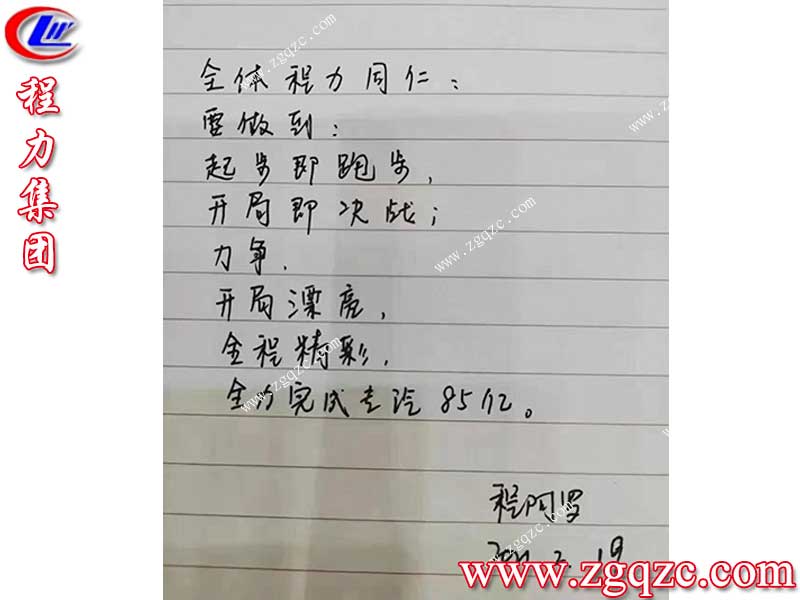 程力集团
全体程力同仁：
要做到：
起步即跑步，
开局即决战；
力争，
开局漂亮，
全程精彩，
全力完成专汽85亿。
程阿罗
19
www.zgqzc.com
www.zgqzc.com
www.zgqzc.com
www.zgqzc.com
www.zgqzc.com
www.zgqzc.com